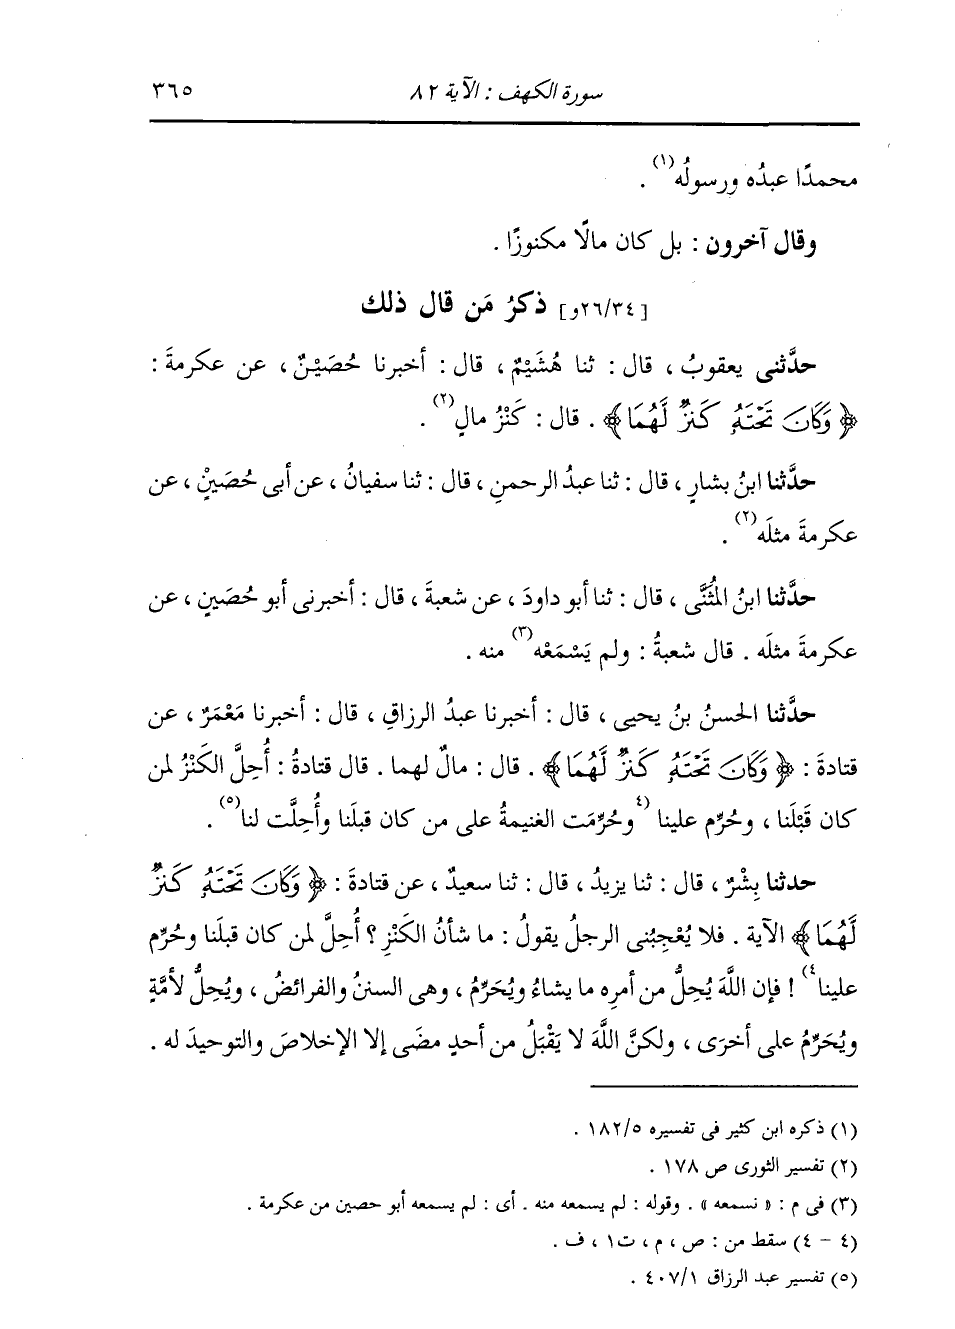 سورة الكهف : الآية ٨٢ ٣٦٥
محمدًا عبدُه ورسولُه(١) .
وقال آخرون : بل كان مالًا مكنوزًا .
[٢٦/٣٤و] ذكرُ مَن قال ذلك
حدَّثنى يعقوبُ ، قال : ثنا هُشَيْمٌ ، قال : أخبرنا حُصَيْنٌ ، عن عكرمةَ :
﴿ وَكَانَ تَحْتَهُۥ كَنزٌ لَّهُمَا ﴾ . قال : كَنْزُ مالٍ(٢) .
حدَّثنا ابنُ بشارٍ ، قال : ثنا عبدُ الرحمنِ ، قال : ثنا سفيانُ ، عن أبى حُصَيْنٍ ، عن
عكرمةَ مثلَه(٢) .
حدَّثنا ابنُ المُثَنَّى ، قال : ثنا أبو داودَ ، عن شعبةَ ، قال : أخبرنى أبو حُصَينٍ ، عن
عكرمةَ مثلَه . قال شعبةُ : ولم يَسْمَعْه(٣) منه .
حدَّثنا الحسنُ بنُ يحيى ، قال : أخبرنا عبدُ الرزاقِ ، قال : أخبرنا مَعْمَرٌ ، عن
قتادةَ : ﴿ وَكَانَ تَحْتَهُۥ كَنزٌ لَّهُمَا ﴾ . قال : مالٌ لهما . قال قتادةُ : أُحِلَّ الكَنْزُ لمن
كان قَبْلَنا ، وحُرِّم علينا (٤وحُرِّمَت الغنيمةُ على من كان قبلَنا وأُحِلَّت لنا(٥) .
حدثنا بِشْرٌ ، قال : ثنا يزيدُ ، قال : ثنا سعيدٌ ، عن قتادةَ : ﴿ وَكَانَ تَحْتَهُۥ كَنزٌ
لَّهُمَا ﴾ الآية . فلا يُعْجِبُنى الرجلُ يقولُ : ما شأنُ الكَنْزِ ؟ أُحِلَّ لمن كان قبلَنا وحُرِّم
علينا٤) ! فإن اللَّهَ يُحِلُّ من أمرِه ما يشاءُ ويُحَرِّمُ ، وهى السننُ والفرائضُ ، ويُحِلُّ لأمَّةٍ
ويُحَرِّمُ على أخرَى ، ولكنَّ اللَّهَ لا يَقْبَلُ من أحدٍ مضَى إلا الإخلاصَ والتوحيدَ له .
(١) ذكره ابن كثير فى تفسيره ١٨٢/٥ .
(٢) تفسير الثورى ص ١٧٨ .
(٣) فى م : « نسمعه » . وقوله : لم يسمعه منه . أى : لم يسمعه أبو حصين من عكرمة .
(٤ - ٤) سقط من : ص ، م ، ت١ ، ف .
(٥) تفسير عبد الرزاق ٤٠٧/١ .